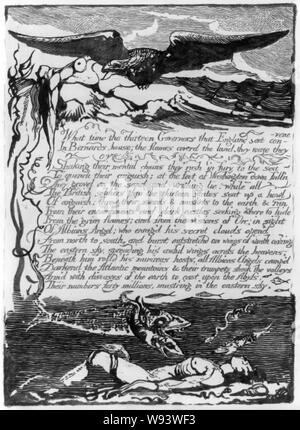 What time the thirteen Governors that England sent con-
-vene
In Bernards house; the flames coverd the land, they rouze they
cry
Shaking their mental chains they rush in fury to the sea
To quench their anguish; at the feet of Washington down falln
They grovel on the sand and writhing lie, while all
The British soldiers thro' the thirteen states sent up a howl
Of anguish: threw their swords & muskets to the earth & ran
From their encampments and dark castles seeking where to hide
From the grim flames; and from the visions of Orc; in sight
Of Albions Angel; who enrag'd his secret clouds open'd
From north to south, and burnt outstretchd on wings of wrath cov'ring
The eastern sky, spreading his awful wings across the heavens;
Beneath him rolld his num'rous hosts, all Albions Angels camp'd
Darkend the Atlantic mountains & their trumpets shook the valleys
Arm'd with diseases of the earth to cast upon the Abyss,
Their numbers forty millions, must'ring in the eastern sky.
alamy
Image ID: W93WF3
www.alamy.com